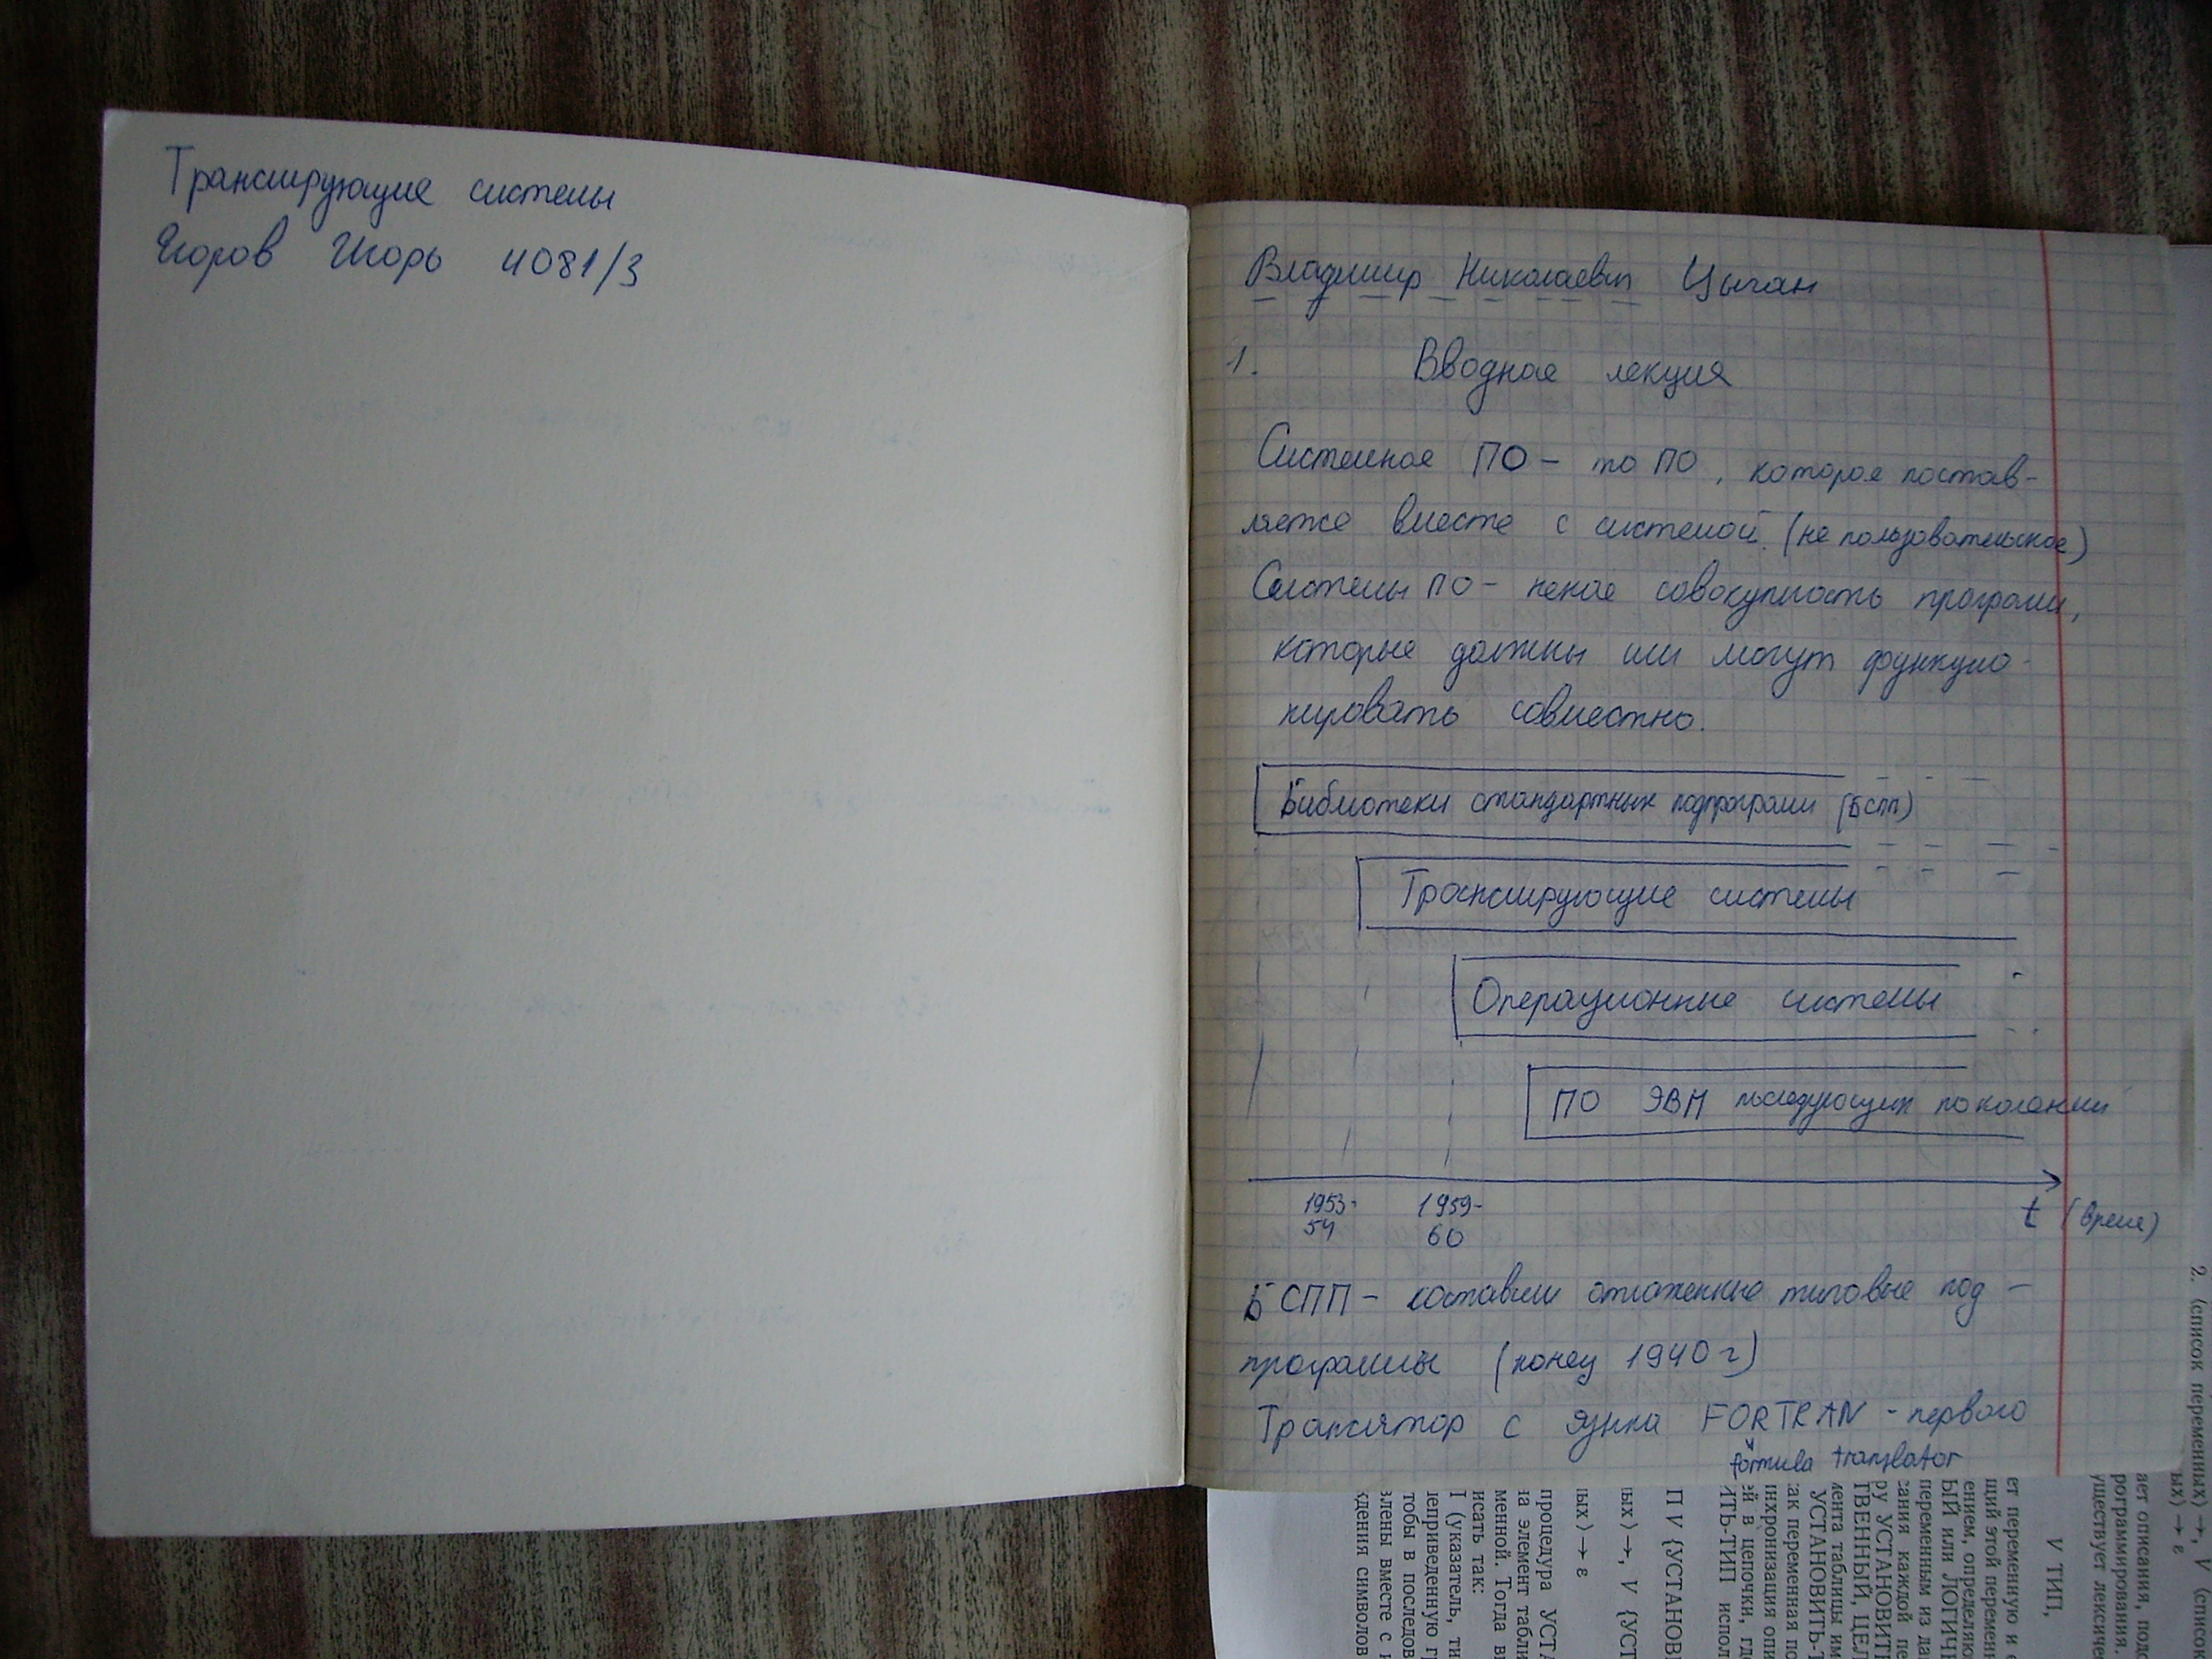 Транслирующие системы
Егоров Игорь 4081/3
Владимир Николаевич Цыган
1. Вводная лекция
Системное ПО - то ПО, которое постав-
ляется вместе с системой. (не пользовательское)
Системы ПО - некая совокупность программ,
которые должны или могут функцио-
нировать совместно.
Библиотеки стандартных подпрограмм (БСПП)
Транслирующие системы
Операционные системы
ПО ЭВМ последующих поколений
1953- 1959-
54 60
t (время)
БСПП - составили отлаженные типовые под-
программы (конец 1940г)
Транслятор с языка FORTRAN - первого
formula translator
2. ⟨список переменных⟩ →, V ⟨список
ных⟩ → ε
ает описания, подо
рограммирования.
уществует лексиче
V ТИП,
ет переменную и е
щий этой перемен
ением, определяю
ЫЙ или ЛОГИЧН
переменным из да
сания каждой пе
РУ УСТАНОВИТ
ТВЕННЫЙ, ЦЕЛ
мента таблицы им
УСТАНОВИТЬ-Т
как переменная по
инхронизация опи
ей в цепочки, гд
ИТЬ-ТИП испол
П V {УСТАНОВ
ных⟩ →, V {УСТ
ных⟩ → ε
процедура УСТА
на элемент табли
менной. Тогда в
исать так:
I (указатель, ти
неприведенную г
тобы в последов
влены вместе с
ждения символов